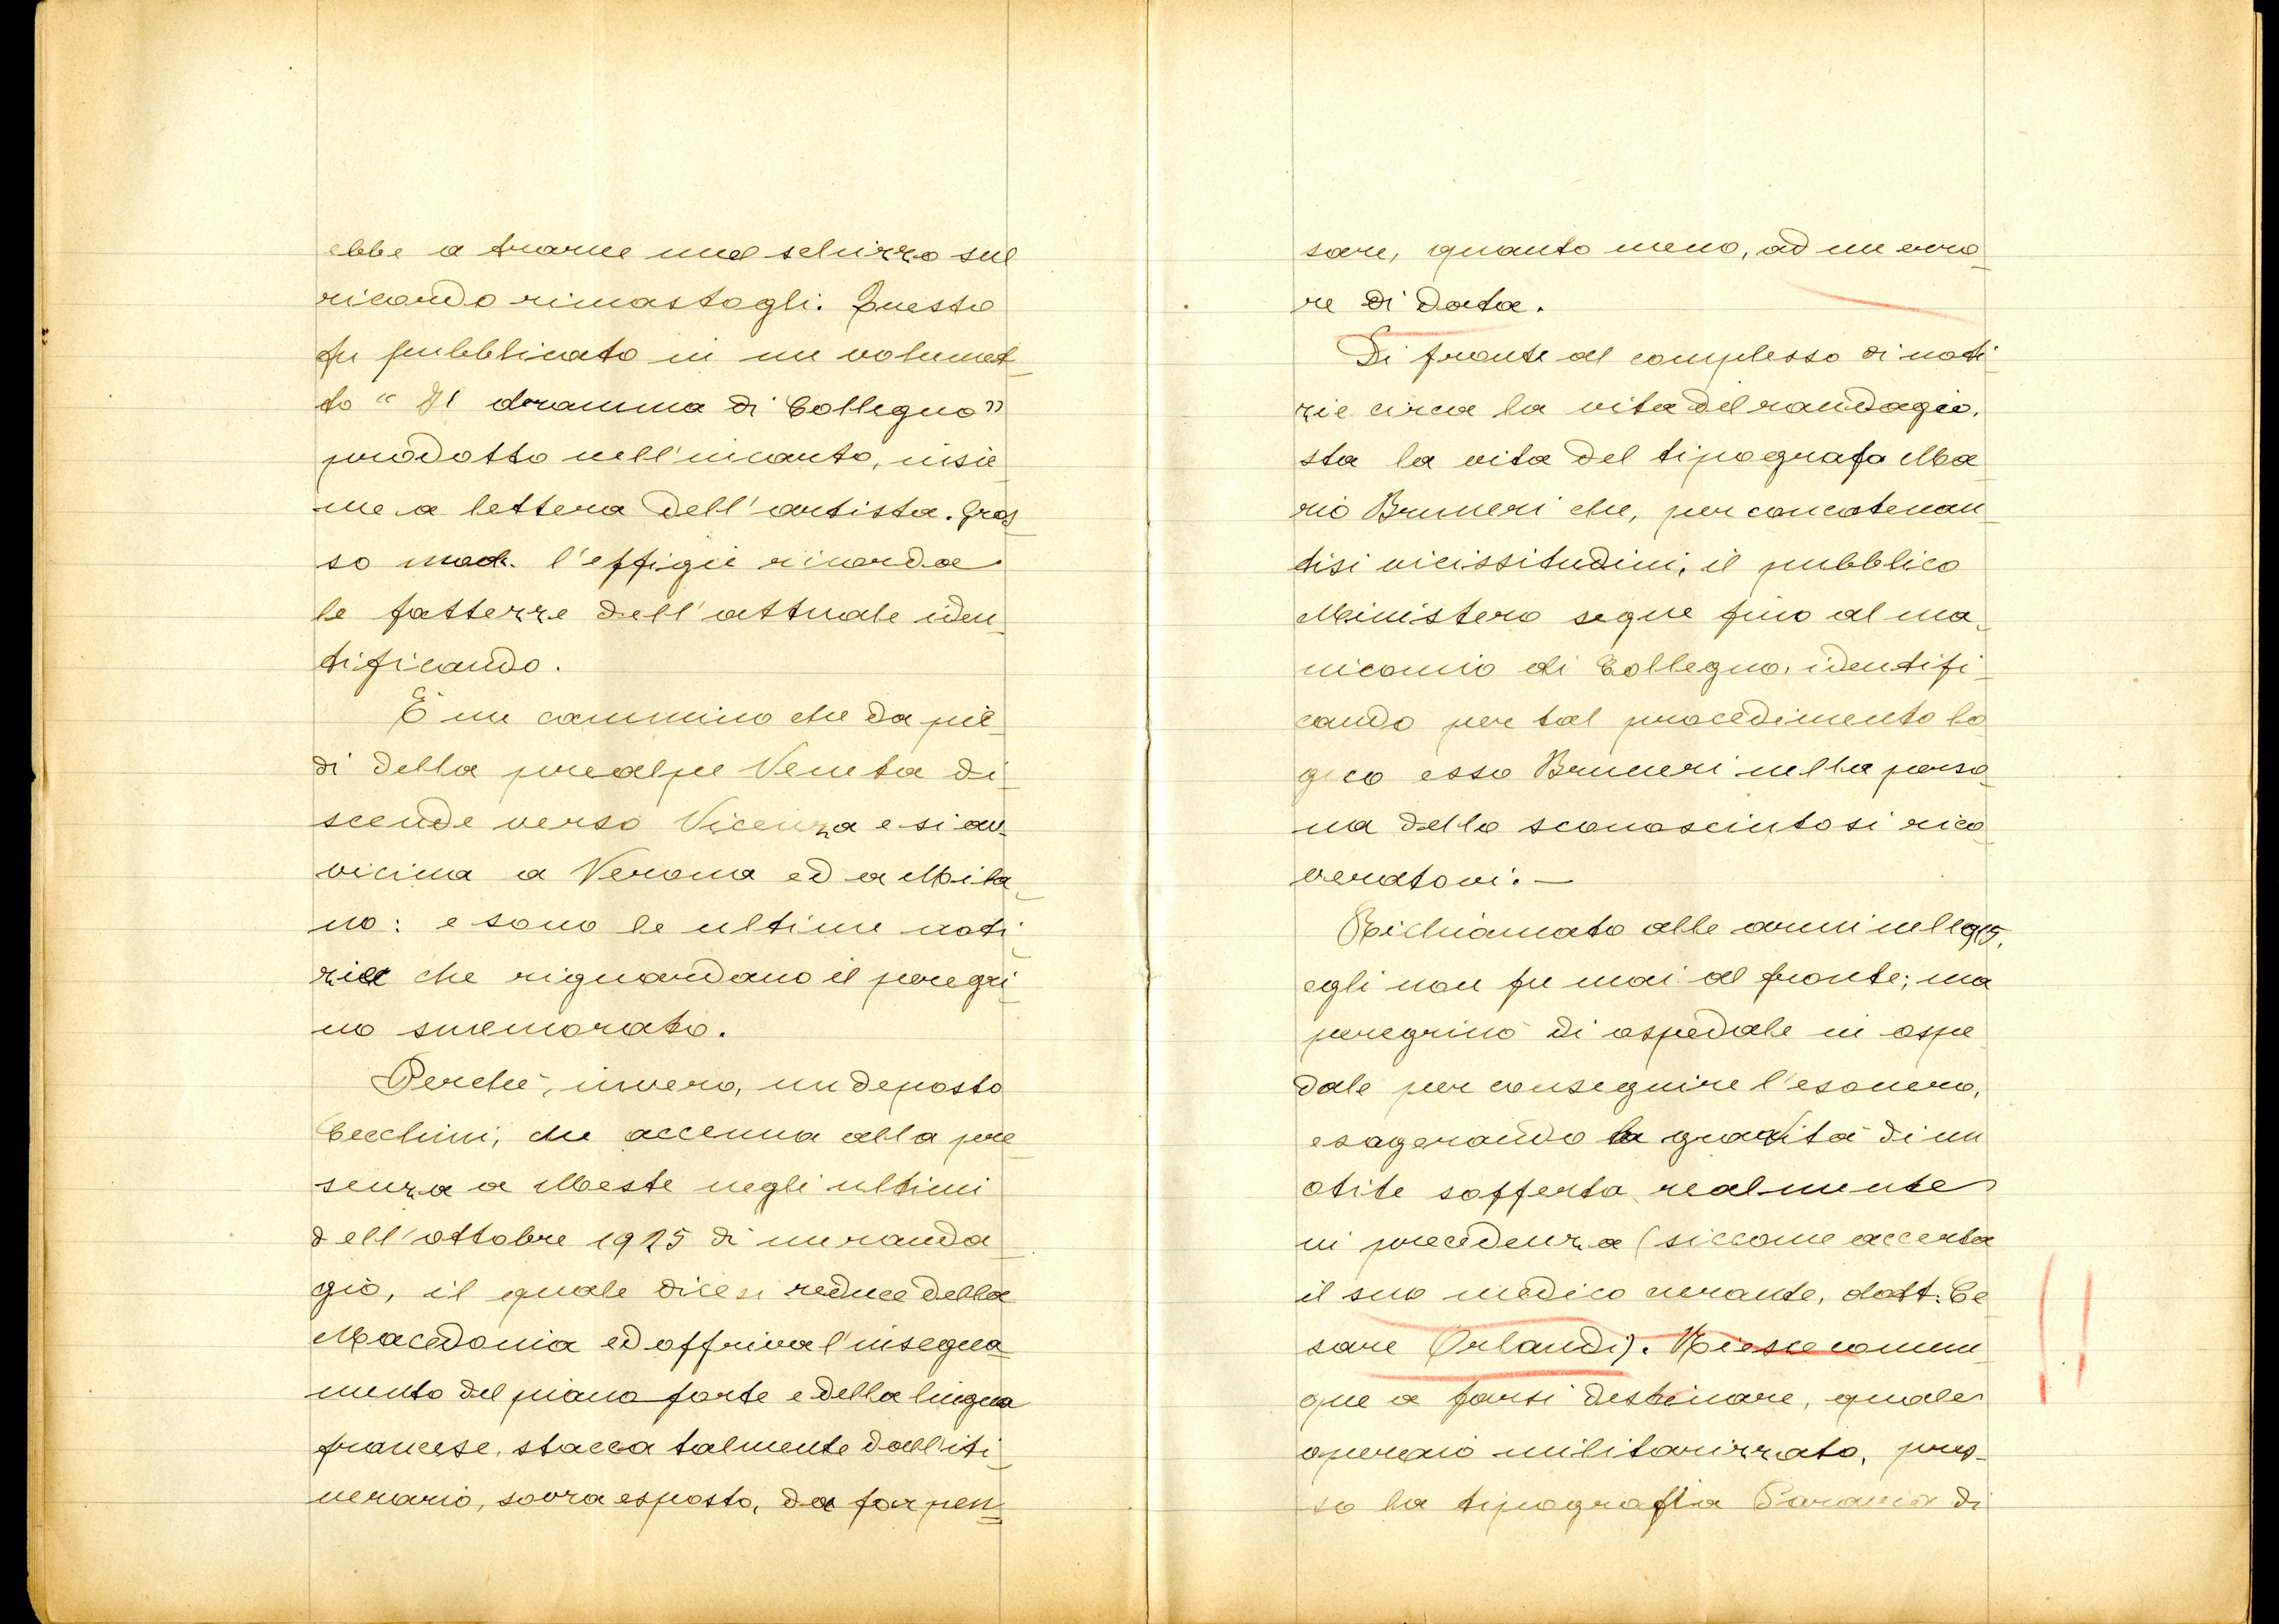 ebbe a trarne uno schizzo sul
ricordo rimastogli. Questo
fu pubblicato in un volumet_
to " Il dramma di Collegno"
prodotto nell'incarto, insie_
me a lettera dell'artista. Gros_
so mod. l'effigie ricorda
le fattezze dell'attuale iden_
tificando.
È un cammino che da pie_
di della prealpe Veneta di_
scende verso Vicenza e si av_
vicina a Verona ed a Mila_
no: e sono le ultime noti_
zie che riguardano il peregri_
no smemorato.
Perchè, invero, un deposto
Cecchini, che accenna alla pre_
senza a Meste negli ultimi
dell'ottobre 1925 di un randa_
gio, il quale dicesi reduce della
Macedonia ed offriva l'insegna_
mento del piano forte e della lingua
francese, stacca talmente dall'iti_
nerario, sovra esposto, da far pen_
sare, quanto meno, ad un erro_
re di data.
Di fronte al complesso di noti_
zie circa la vita del randagio,
sta la vita del tipografo Ma_
rio Bruneri che, per concatenan_
tisi vicissitudini, il pubblico
Ministero segue fino al ma_
nicomio di Collegno, identifi_
cando per tal procedimento lo_
gico esso Bruneri nella perso_
na dello sconosciutosi rico_
veratovi. —
Richiamato alle armi nel 1915,
egli non fu mai al fronte; ma
peregrinò di ospedale in ospe_
dale per conseguire l'esonero,
esagerando la gravità di un
otite sofferta realmente
in precedenza (siccome accerta
il suo medico curante, dott. Ce_
sare Orlandi). Riesce comun_
que a farsi destinare, quale
operaio militarizzato, pres_
so la tipografia Paravia di